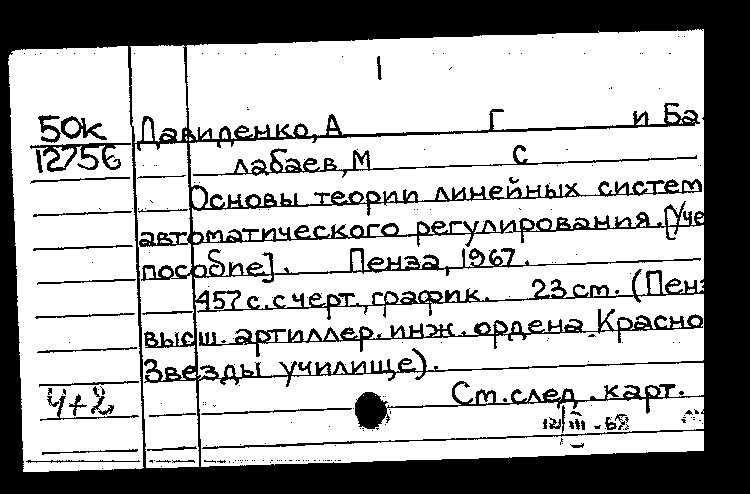 1
50К Давиденко, А Г и Ба-
12756 лабаев, М С
Основы теории линейных систем
автоматического регулирования. [Уче
пособие]. Пенза, 1967.
457 с. с черт., график. 23 ст. (Пенз
высш. артиллер. инж. ордена Красно
Звезды училище).
4+2 Ст. след. карт.
12/III-68